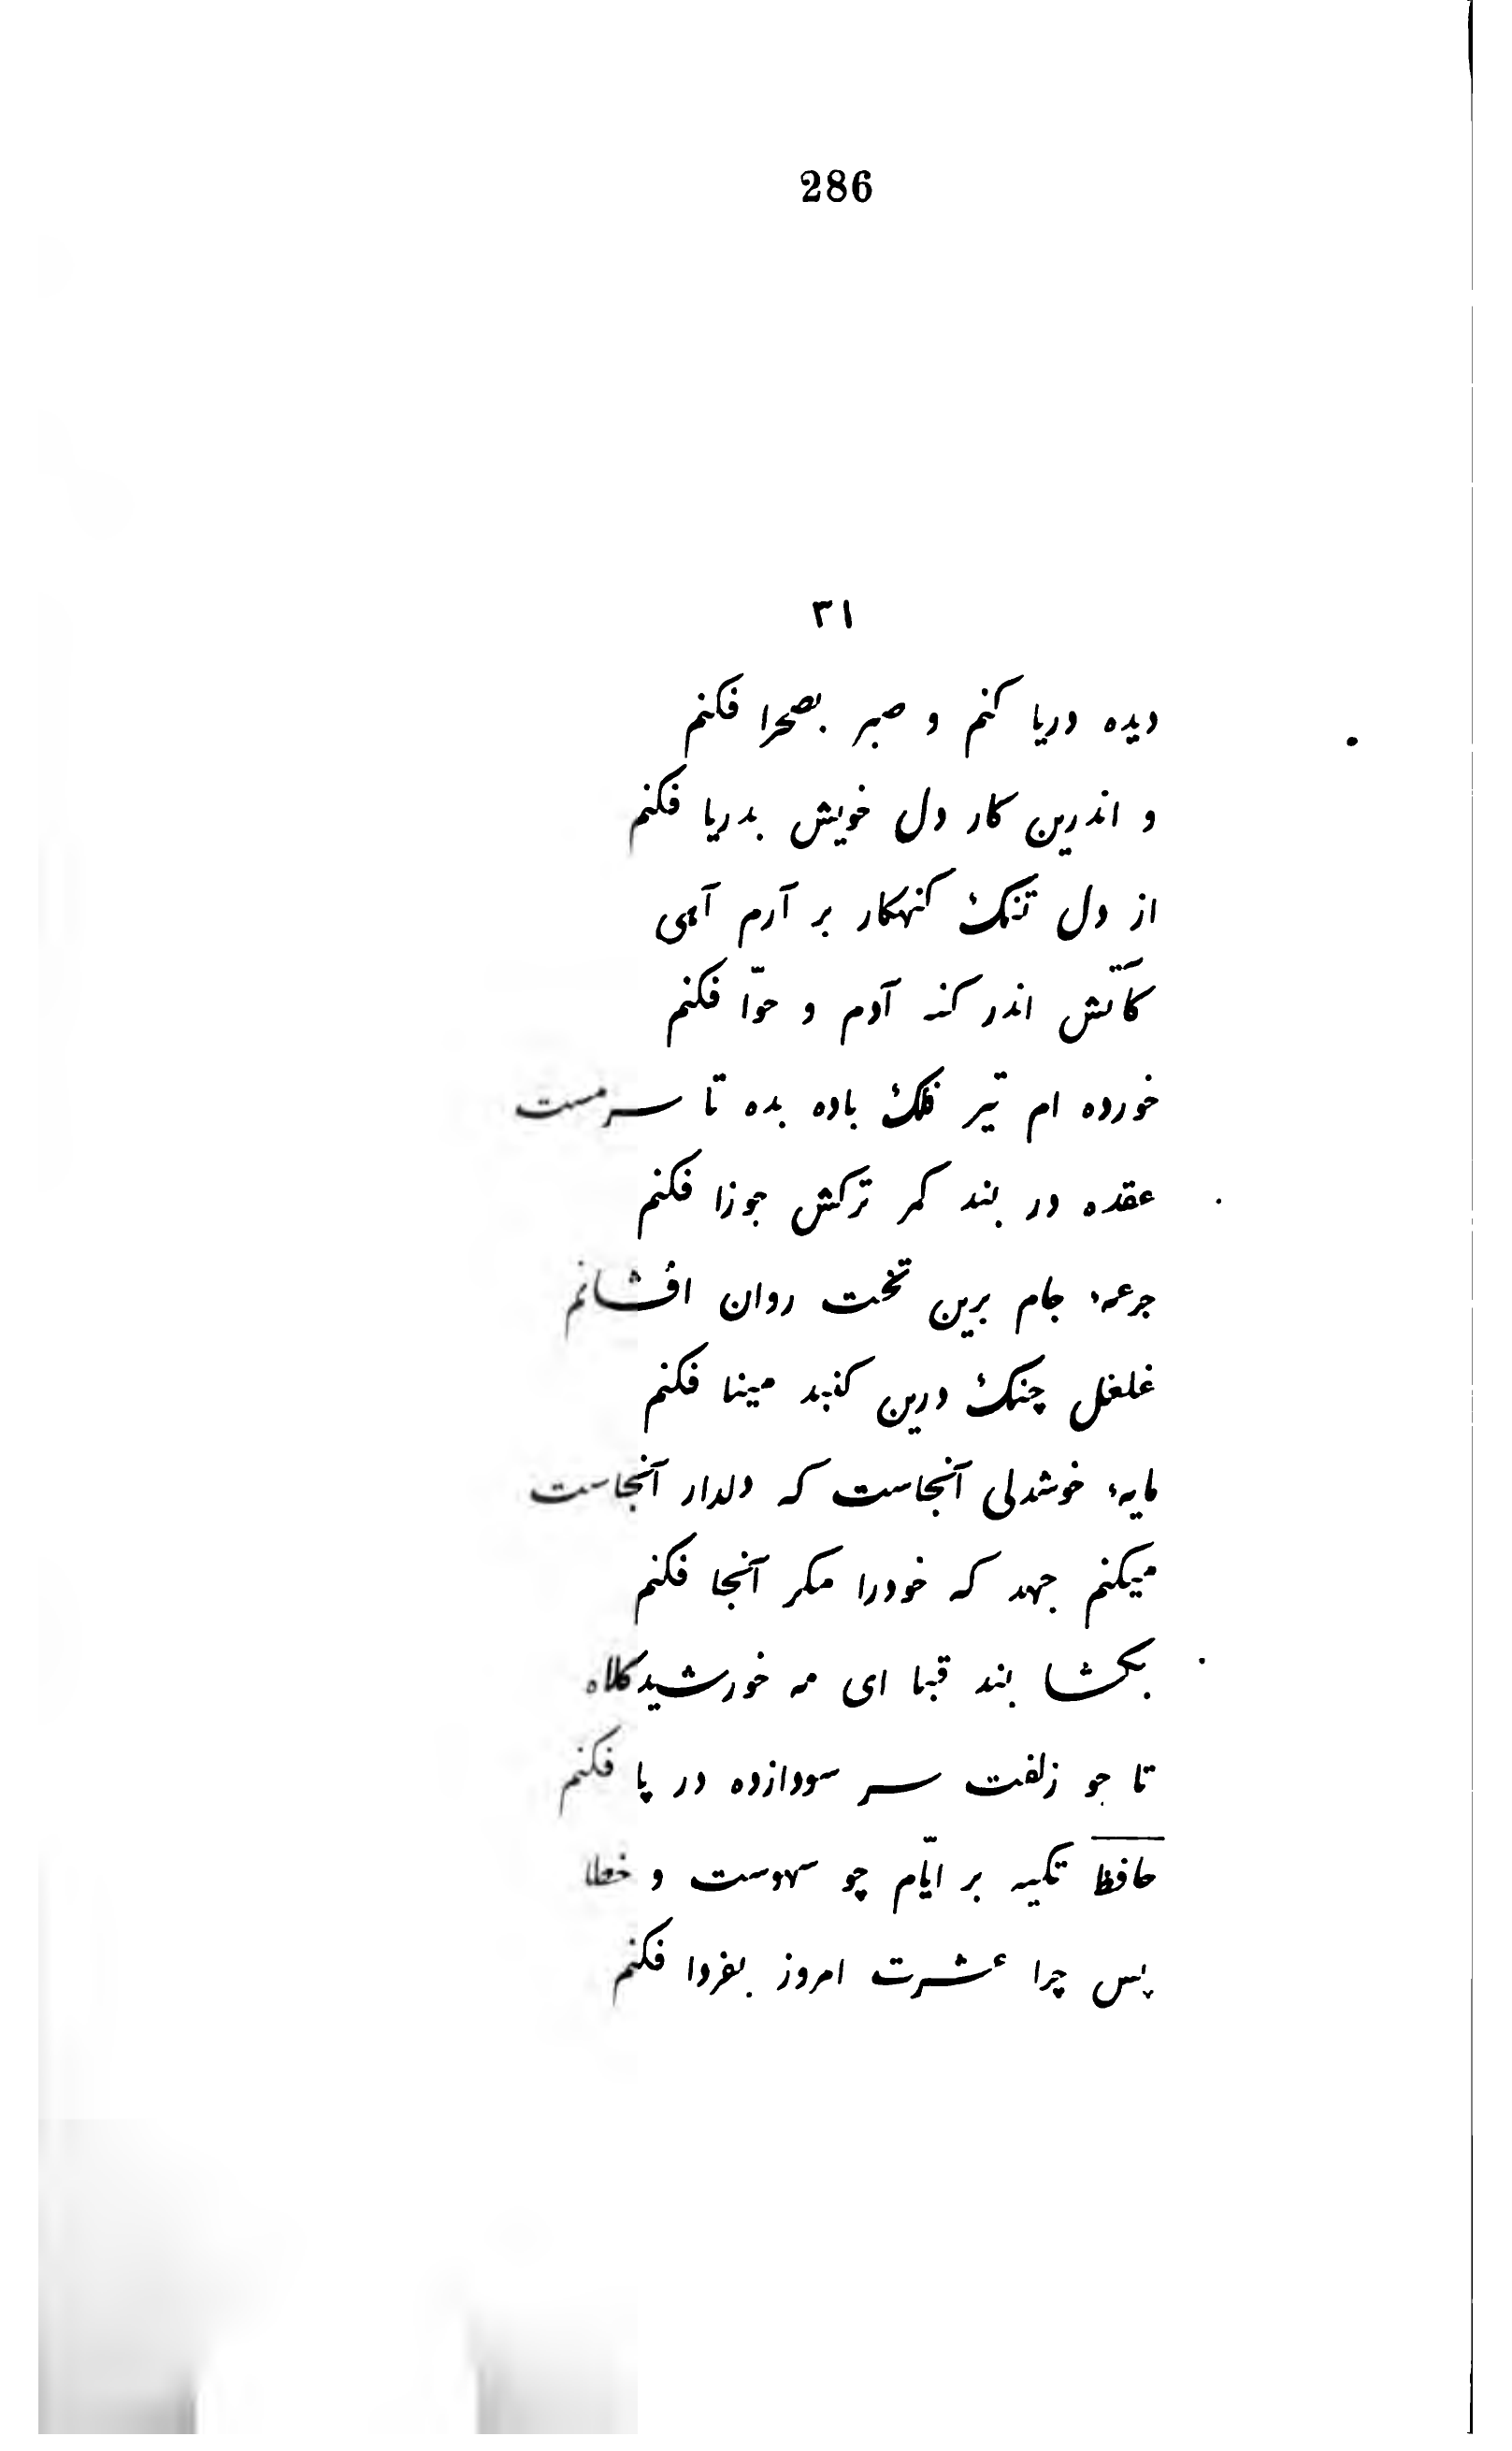 286
۳۱
دیده دریا کنم و صبر بصحرا فکنم
و اندرین کار دل خویش بدریا فکنم
از دل تنک کنهکار بر آرم آهی
کآتش اندر کنه آدم و حوّا فکنم
خورده ام تیر فلک باده بده تا سرمست
عقده در بند کمر ترکش جوزا فکنم
جرعهٔ جام برین تخت روان افشانم
غلغل چنک درین کنبد مینا فکنم
مایهٔ خوشدلی آنجاست که دلدار آنجاست
میکنم جهد که خودرا مکر آنجا فکنم
بکشا بند قبا ای مه خورشیدکلاه
تا چو زلفت سر سودازده در پا فکنم
حافظ تکیه بر ایّام چو سهوست و خطا
پس چرا عشرت امروز بفردا فکنم